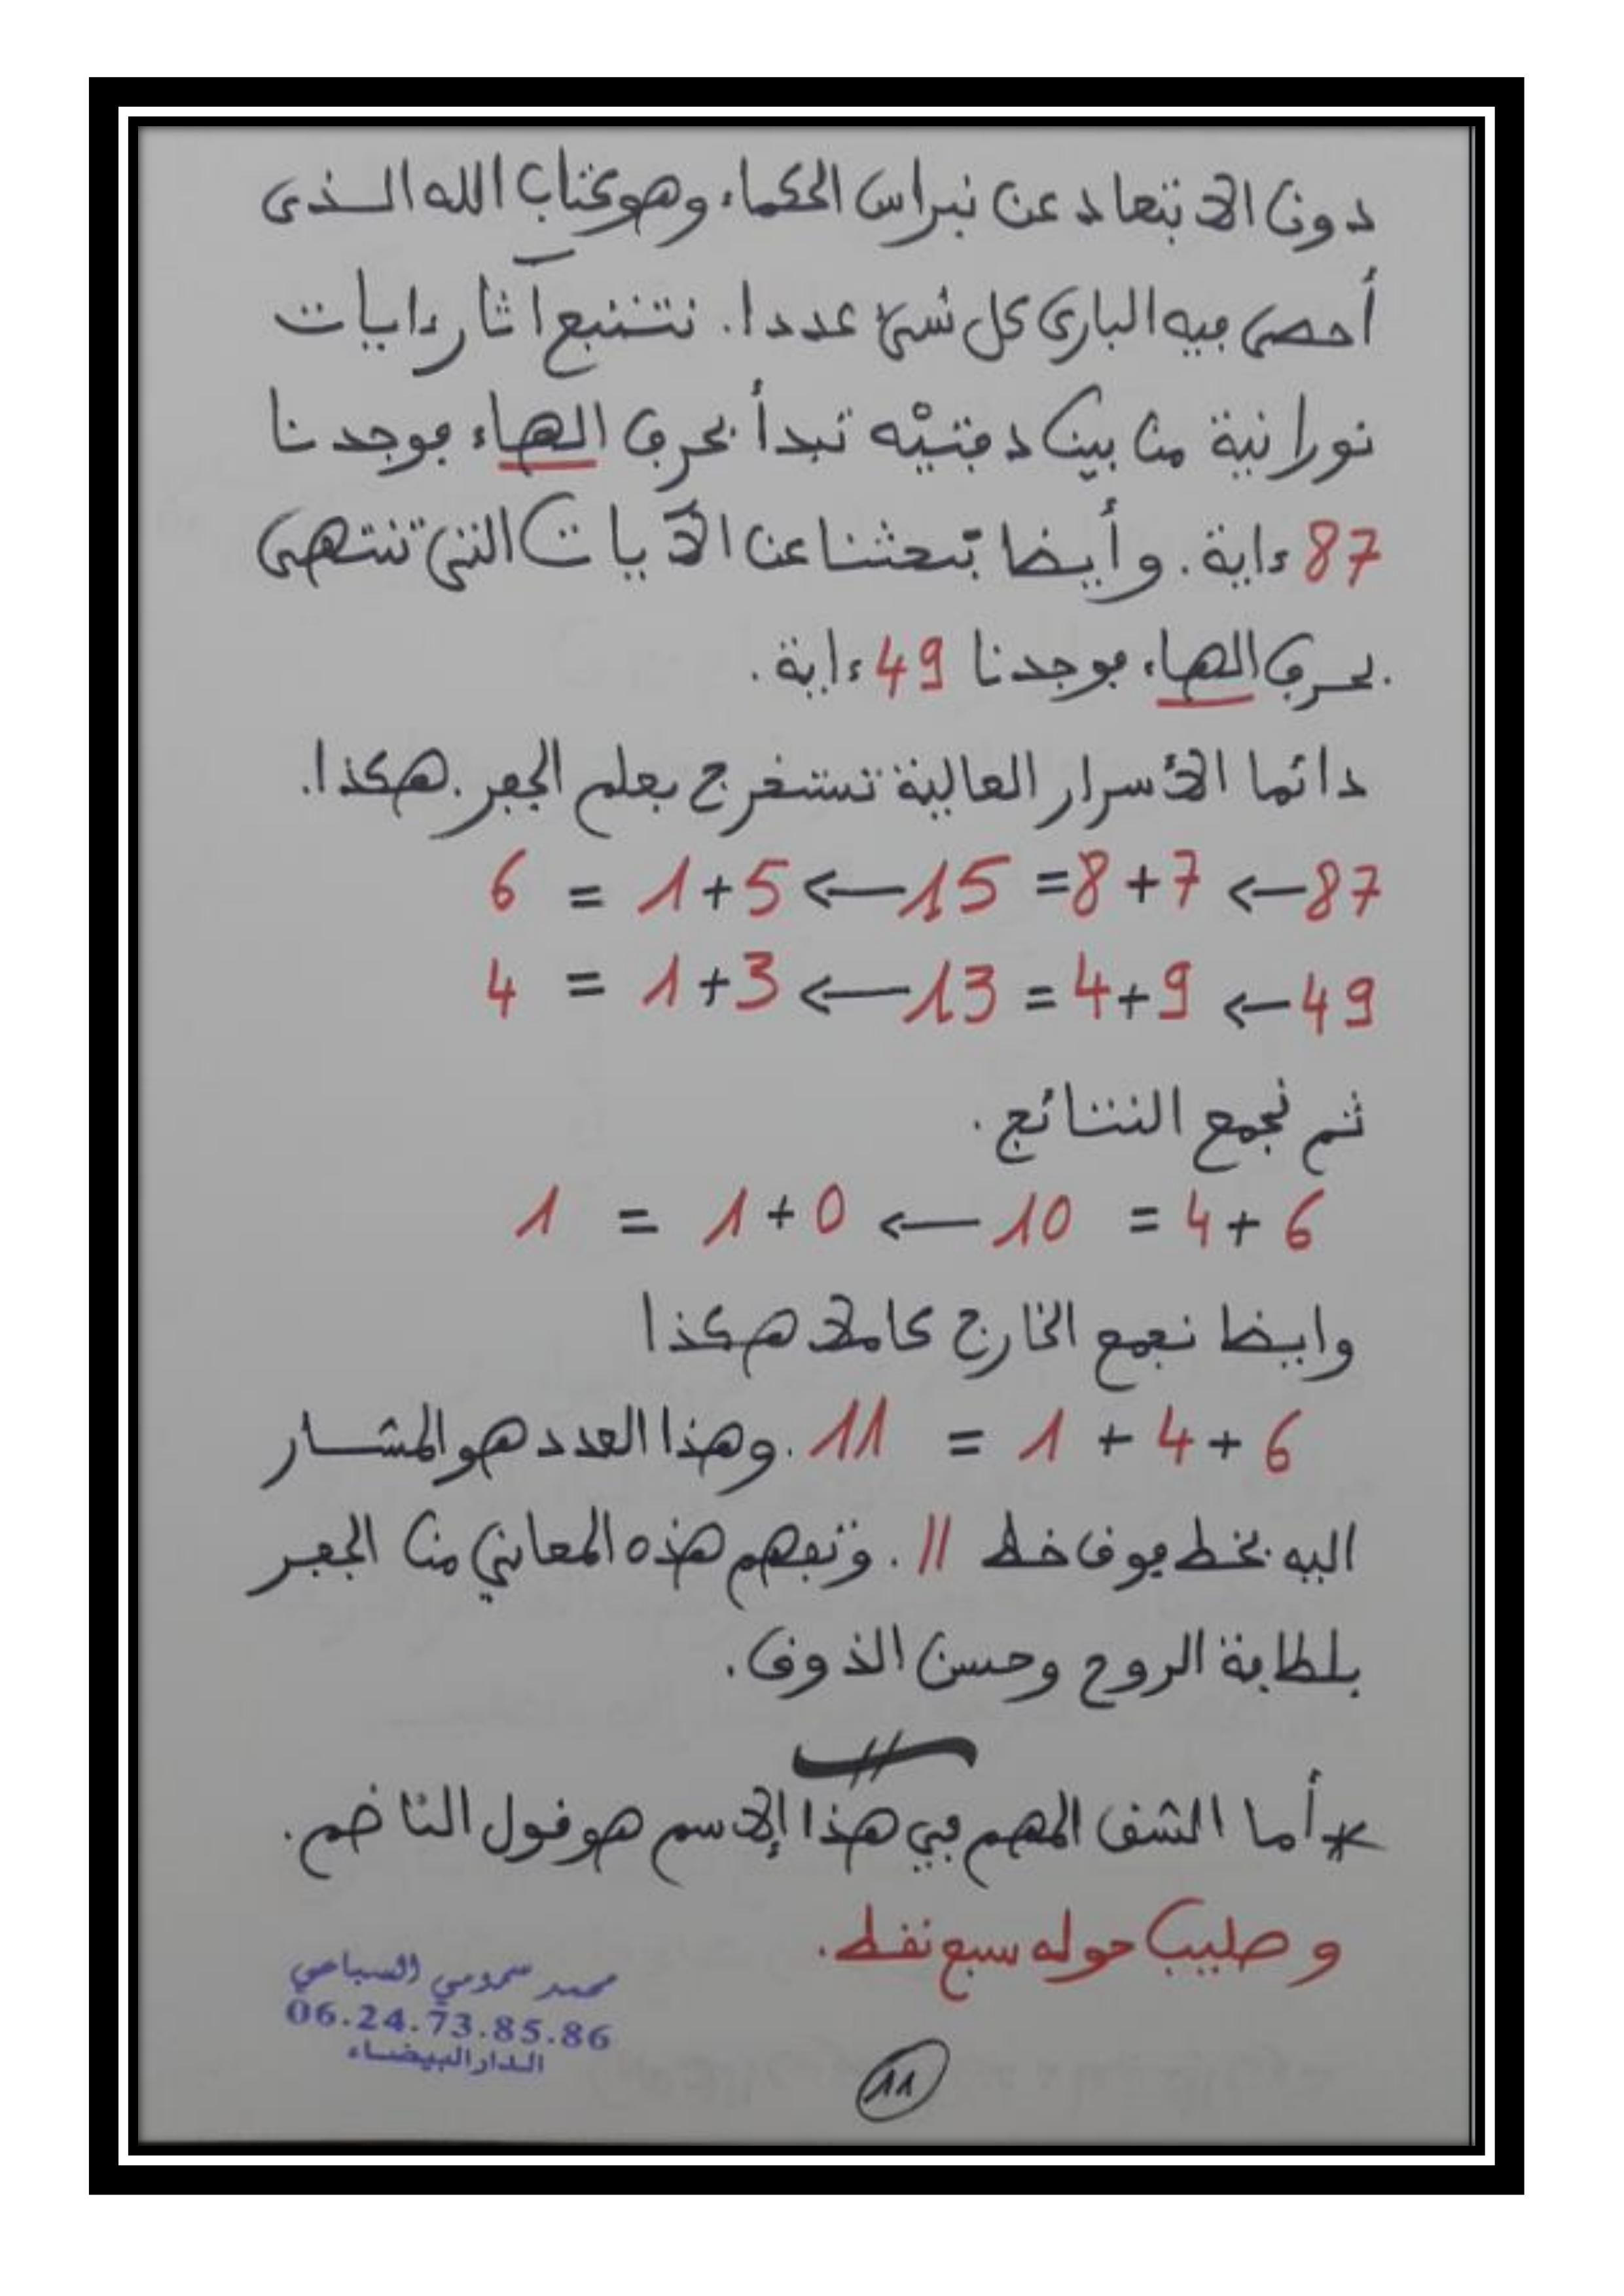 دون الابتعاد عن نبراس الحكماء وهو كتاب الله الـذى
أحصى فيه البارئ كل شىء عددا. نتتبع آثار ءايات
نورانية من بين دفتيْه تبدأ بحرف الهاء فوجدنا
87 ءاية. وأيضا بحثنا عن الآيات التى تنتهى
بحرف الهاء فوجدنا 49 ءاية.
دائما الأسرار العالية تستخرج بعلم الجفر. هكذا.
87 ← 7+8 = 15 ← 5+1 = 6
49 ← 9+4 = 13 ← 3+1 = 4
ثم نجمع النتائج.
6 + 4 = 10 ← 0+1 = 1
وايضا نجمع الخارج كاملا هكذا
6 + 4 + 1 = 11. وهذا العدد هو المشار
اليه بخط فوق خط 11. وتفهم هذه المعاني من الجفر
بلطافة الروح وحسن الذوق.
* أما الشق المهم في هذا الإسم هو قول الناضم.
وصليب حوله سبع نقط.
محمد سمومي السباعي
06.24.73.85.86
الدار البيضاء
11